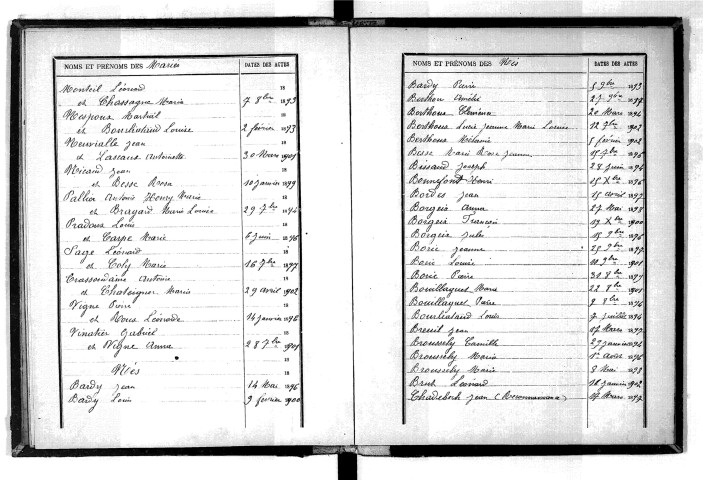 NOMS ET PRÉNOMS DES Mariés DATES DES ACTES
18
Monteil Léonard
et Chassagne Marie 7 8bre 1893
Mespoux Martial
et Bourliataud Louise 2 février 1893
Neuvialle Jean
et Lassaux Antoinette 30 Mars 1901
Nicaud Jean
et Besse Rosa 10 janvier 1899
Pallier Antoine Henry Marie
et Brayard Marie Louise 29 7bre 1894
Pradoux Louis
et Carpe Marie 6 juin 1896
Sage Léonard
et Coly Marie 16 7bre 1897
Trassoudaine Antoine
et Chateignier Marie 29 avril 1902
Vigne Pierre
et Roux Léonarde 14 janvier 1896
Vinatier Gabriel
et Vigne Anna 28 7bre 1901
Nés
Bardy Jean 14 Mai 1896
Bardy Louis 9 février 1900
NOMS ET PRÉNOMS DES Nés DATES DES ACTES
Bardy Pierre 5 9bre 1893
Berthon Amélie 27 9bre 1897
Berthoux Clémence 20 Mars 1894
Berthoux Lucie Jeanne Marie Louise 12 7bre 1902
Berthoux Mélanie 5 février 1902
Besse Marie Rosa Jeanne 15 7bre 1896
Bissaud Joseph 28 juin 1894
Bonnefont Henri 15 Xbre 1896
Bordes Jean 15 avril 1897
Borgeix Anna 27 Mai 1898
Borgeix François 19 Xbre 1900
Borgeix Jules 15 9bre 1896
Borie Jeanne 25 9bre 1897
Borie Louise 11 9bre 1901
Borie Pierre 31 8bre 1897
Bouillaguet Marie 22 8bre 1901
Bouillaguet Pierre 2 8bre 1896
Bourliataud Louis 7 juillet 1896
Breuil Jean 17 Mars 1897
Broussely Camille 29 janvier 1894
Broussely Marie 1er août 1896
Broussely Marie 8 Mai 1899
Brut Léonard 18 janvier 1902
Chadebech Jean (Reconnaissance) 17 Mars 1897